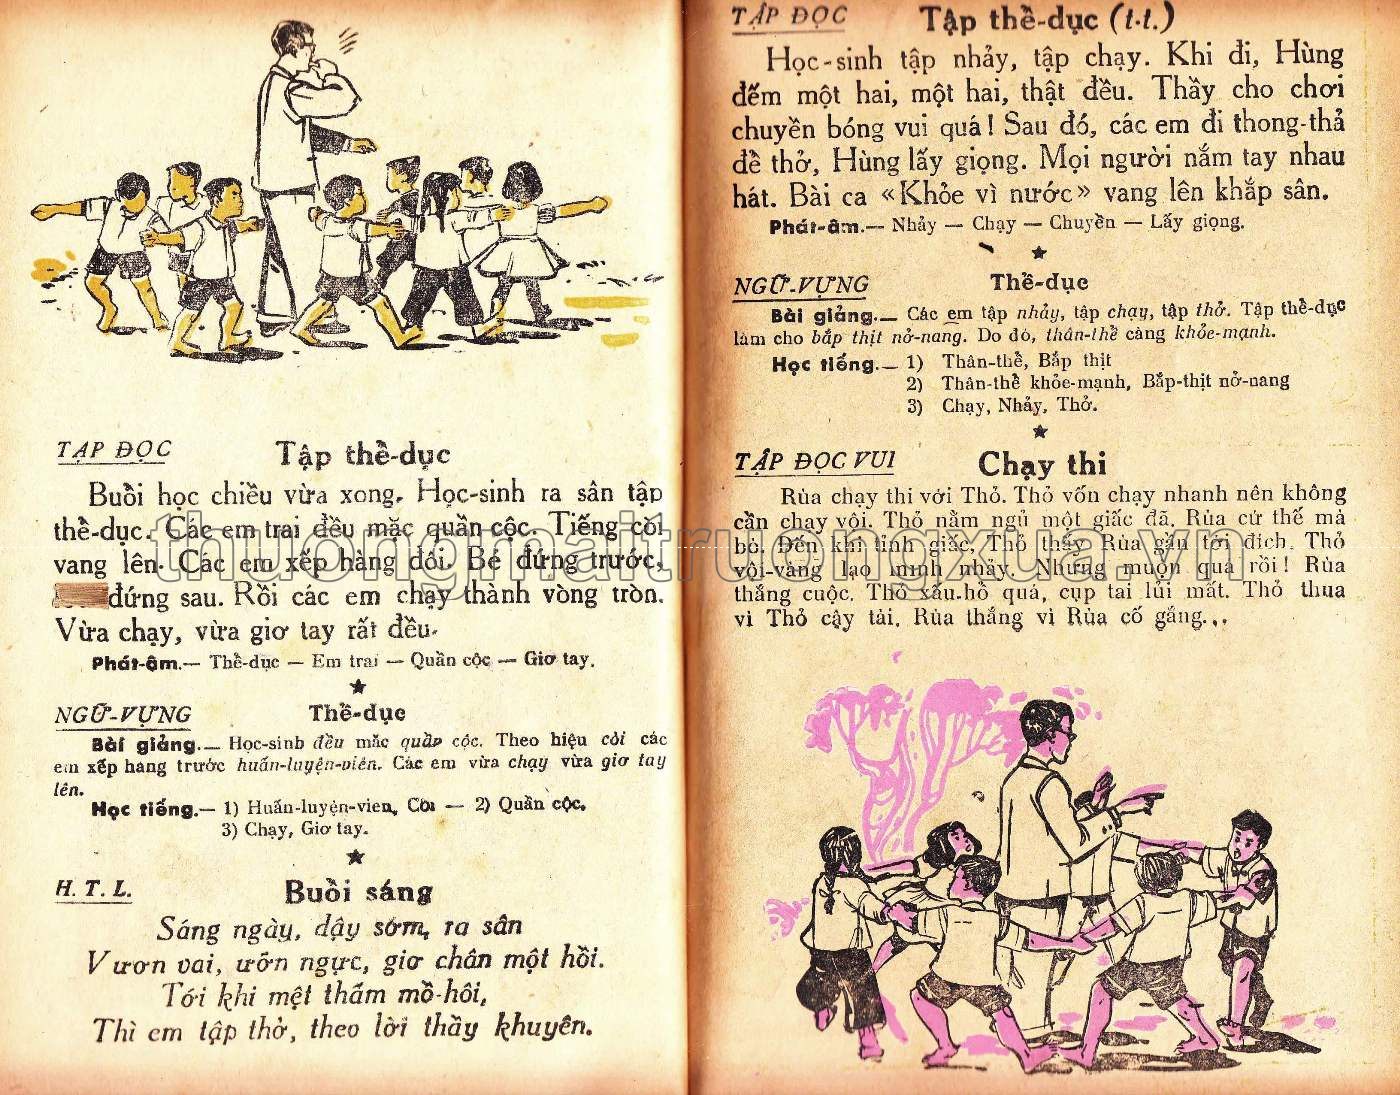 TẬP ĐỌC
Tập thể-dục
Buổi học chiều vừa xong. Học-sinh ra sân tập
thể-dục. Các em trai đều mặc quần cộc. Tiếng còi
vang lên. Các em xếp hàng đôi. Bé đứng trước,
đứng sau. Rồi các em chạy thành vòng tròn.
Vừa chạy, vừa giơ tay rất đều.
Phát-âm.— Thể-dục — Em trai — Quần cộc — Giơ tay.
NGỮ-VỰNG
Thể-dục
Bài giảng.— Học-sinh đều mặc quần cộc. Theo hiệu còi các
em xếp hàng trước huấn-luyện-viên. Các em vừa chạy vừa giơ tay
lên.
Học tiếng.— 1) Huấn-luyện-viên, Còi — 2) Quần cộc.
3) Chạy, Giơ tay.
H. T. L.
Buổi sáng
Sáng ngày, dậy sớm, ra sân
Vươn vai, ưỡn ngực, giơ chân một hồi.
Tới khi mệt thấm mồ-hôi,
Thì em tập thở, theo lời thầy khuyên.
TẬP ĐỌC
Tập thể-dục (t.t.)
Học-sinh tập nhảy, tập chạy. Khi đi, Hùng
đếm một hai, một hai, thật đều. Thầy cho chơi
chuyền bóng vui quá! Sau đó, các em đi thong-thả
để thở, Hùng lấy giọng. Mọi người nắm tay nhau
hát. Bài ca «Khỏe vì nước» vang lên khắp sân.
Phát-âm.— Nhảy — Chạy — Chuyền — Lấy giọng.
NGỮ-VỰNG
Thể-dục
Bài giảng.— Các em tập nhảy, tập chạy, tập thở. Tập thể-dục
làm cho bắp thịt nở-nang. Do đó, thân-thể càng khỏe-mạnh.
Học tiếng.— 1) Thân-thể, Bắp thịt
2) Thân-thể khỏe-mạnh, Bắp-thịt nở-nang
3) Chạy, Nhảy, Thở.
TẬP ĐỌC VUI
Chạy thi
Rùa chạy thi với Thỏ. Thỏ vốn chạy nhanh nên không
cần chạy vội. Thỏ nằm ngủ một giấc đã. Rùa cứ thế mà
bò. Đến khi tỉnh giấc, Thỏ thấy Rùa gần tới đích. Thỏ
vội-vàng lao mình nhảy. Nhưng muộn quá rồi! Rùa
thắng cuộc. Thỏ xấu-hổ quá, cụp tai lủi mất. Thỏ thua
vì Thỏ cậy tài. Rùa thắng vì Rùa cố gắng...
thuongmaitruongxua.vn